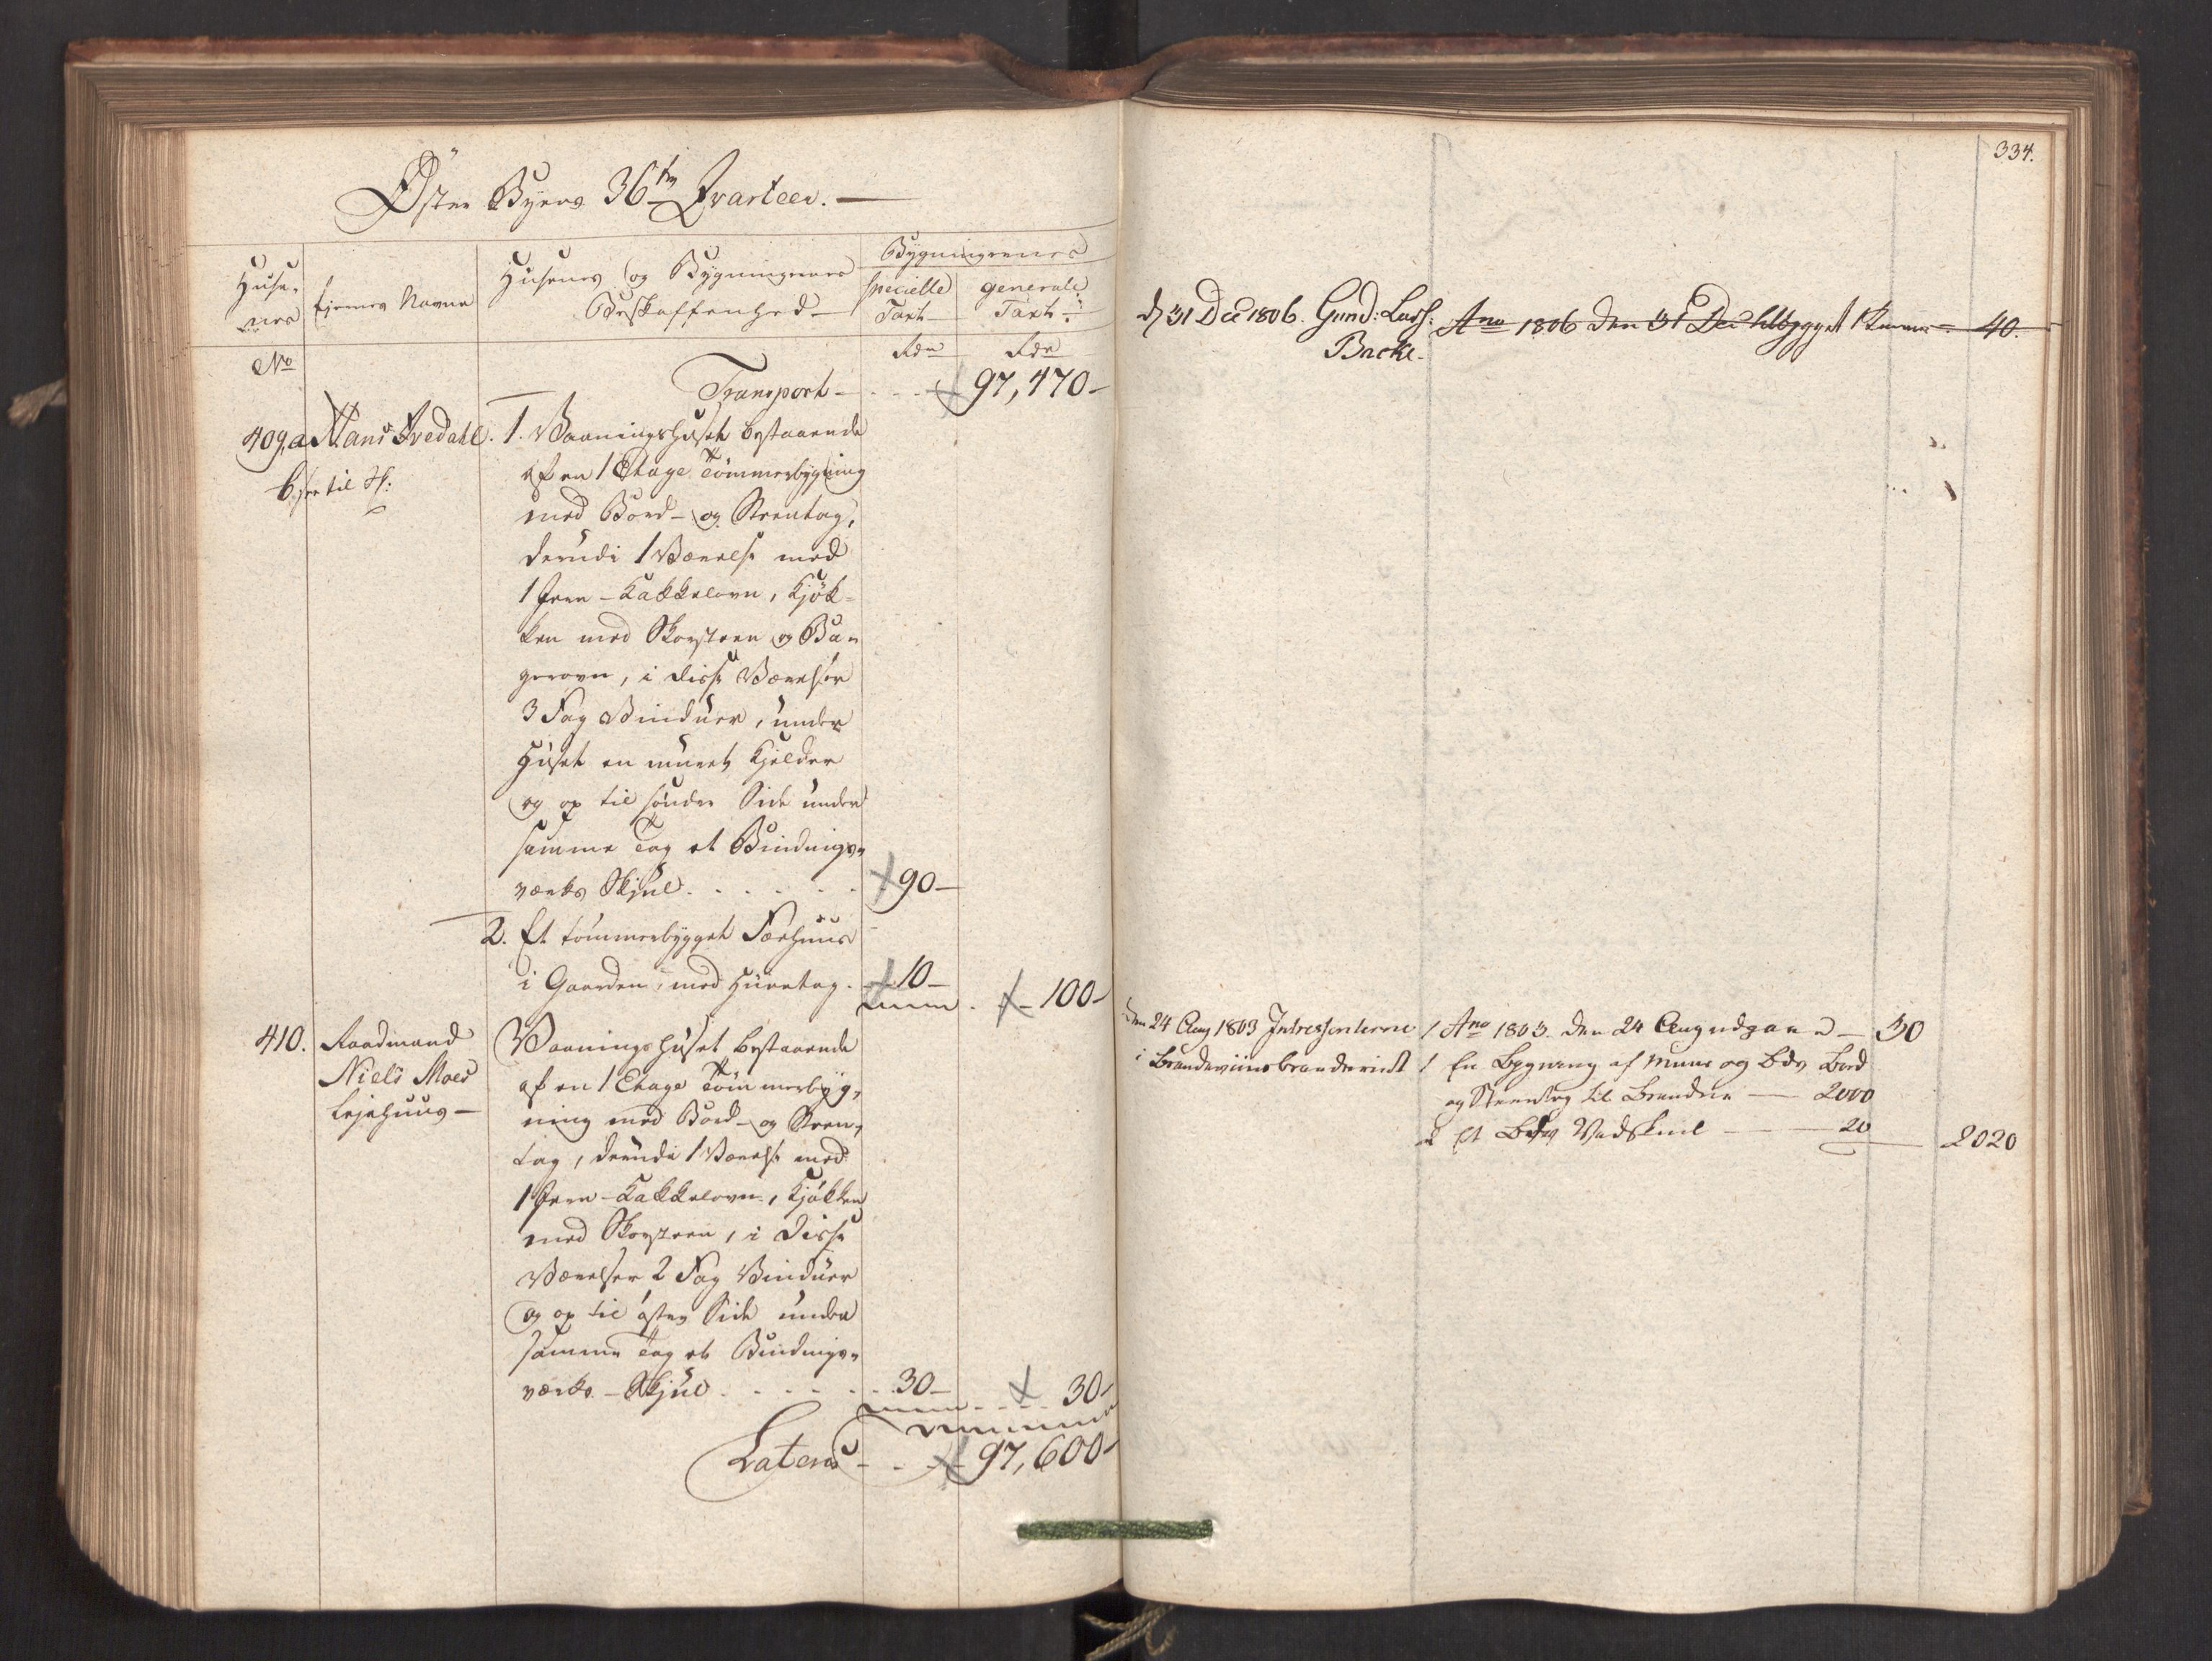 Öster Byens 36te Qvarteer.
Huse-
nes
No
Ejernes Navne
Husenes og Bygningernes
Beskaffenhed
Bygningernes
specielle
Taxt
generale
Taxt
Rdr
Rdr
Transport - 97,470-
409,a Hans Svedahl.
b. see til H:
1. Vaaningshuset bestaaende
af en 1 Etage Tömmerbygning
med Bord- og Steentag,
derudi 1 Værelse med
1 Jern-Kakkelovn, Kjök-
ken med Skorsteen og Ba-
gerovn, i disse Værelser
3 Fag Vinduer, under
Huset en muret Kjelder
og op til söndre Side under
samme Tag et Bindings-
værks Skjul. . . . . . 90-
2. Et tömmerbygget Fæehuus
i Gaarden, med Huuntag. 10-
100-
410. Raadmand
Niels Moes
Lejehuus-
Vaaningshuset bestaaende
af en 1 Etage Tömmerbyg-
ning med Bord- og Steen-
tag, derudi 1 Værelse med
1 Jern-Kakkelovn, Kjökken
med Skorsteen, i disse
Værelser 2 Fag Vinduer
og op til östre Side under
samme Tag et Bindings-
værks-Skjul. . . . 30-
30-
Lateris - 97,600-
334.
d 31 Dec 1806. Gund: Larss:
Backe.
Ano 1806 den 31 Dec tilbygget 1 Kammer 40.
den 24 Aug 1803 Intressenterne
i Brændeviinsbrænderiet
1 Ano 1803. den 24 Aug udgaaed - 30
1 En Bygning af Muur og Bdv Bord
og Steentag til Brænderie - 2000
2 Et Bdv Vedskiul - 20
2020